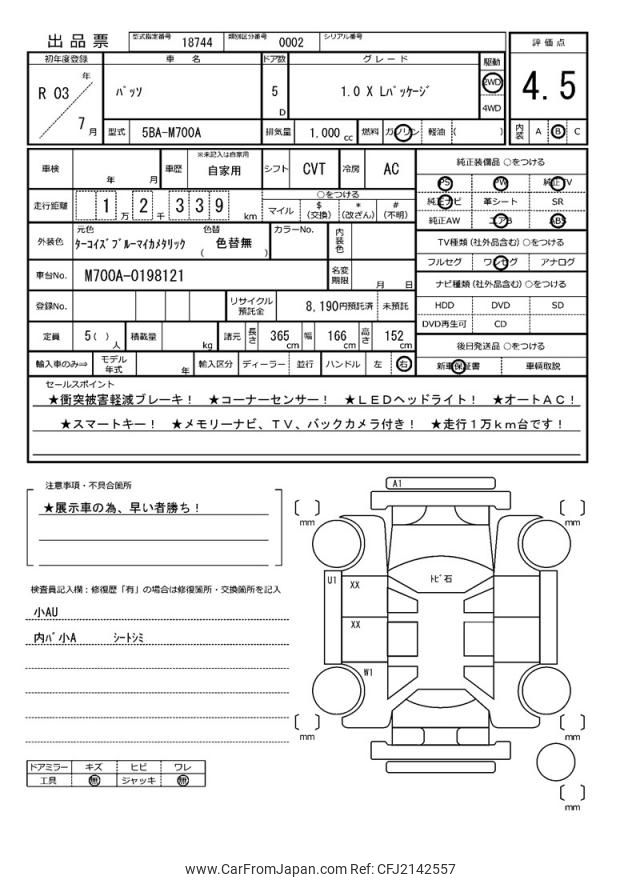 出品票 型式指定番号 18744 類別区分番号 0002 シリアル番号
評価点
初年度登録 車名 ドア数 グレード 駆動
R 03 年 7 月
パッソ 5 D 1.0 X Lパッケージ 2WD 4WD
4.5
型式 5BA-M700A 排気量 1,000 cc 燃料 ガソリン 軽油 ( )
内装 A B C
車検 年 月 車歴 ※未記入は自家用 自家用 シフト CVT 冷房 AC
純正装備品 ○をつける
PS PW 純正TV
走行距離 1 万 2 千 3 3 9 km
○をつける
マイル $ (交換) * (改ざん) # (不明)
純正ナビ 革シート SR
純正AW エアB ABS
外装色 元色 ターコイズブルーマイカメタリック 色替 ( 色替無 ) カラーNo. 内装色
TV種類 (社外品含む) ○をつける
フルセグ ワンセグ アナログ
車台No. M700A-0198121 名変期限 月 日
ナビ種類 (社外品含む) ○をつける
登録No. リサイクル預託金 8,190円預託済 未預託
HDD DVD SD
DVD再生可 CD
定員 5 ( ) 人 積載量 kg 諸元 長さ 365 cm 幅 166 cm 高さ 152 cm
後日発送品 ○をつける
輸入車のみ⇒ モデル年式 年 輸入区分 ディーラー 並行 ハンドル 左 右
新車保証書 車輌取説
セールスポイント
★衝突被害軽減ブレーキ! ★コーナーセンサー! ★LEDヘッドライト! ★オートAC!
★スマートキー! ★メモリーナビ、TV、バックカメラ付き! ★走行1万km台です!
注意事項・不具合箇所
★展示車の為、早い者勝ち!
検査員記入欄:修復歴「有」の場合は修復箇所・交換箇所を記入
小AU
内バ小A シートシミ
ドアミラー キズ ヒビ ワレ
工具 無 ジャッキ 無
A1
mm
mm
トビ石
U1
XX
XX
W1
mm
mm
mm
www.CarFromJapan.com Ref: CFJ2142557